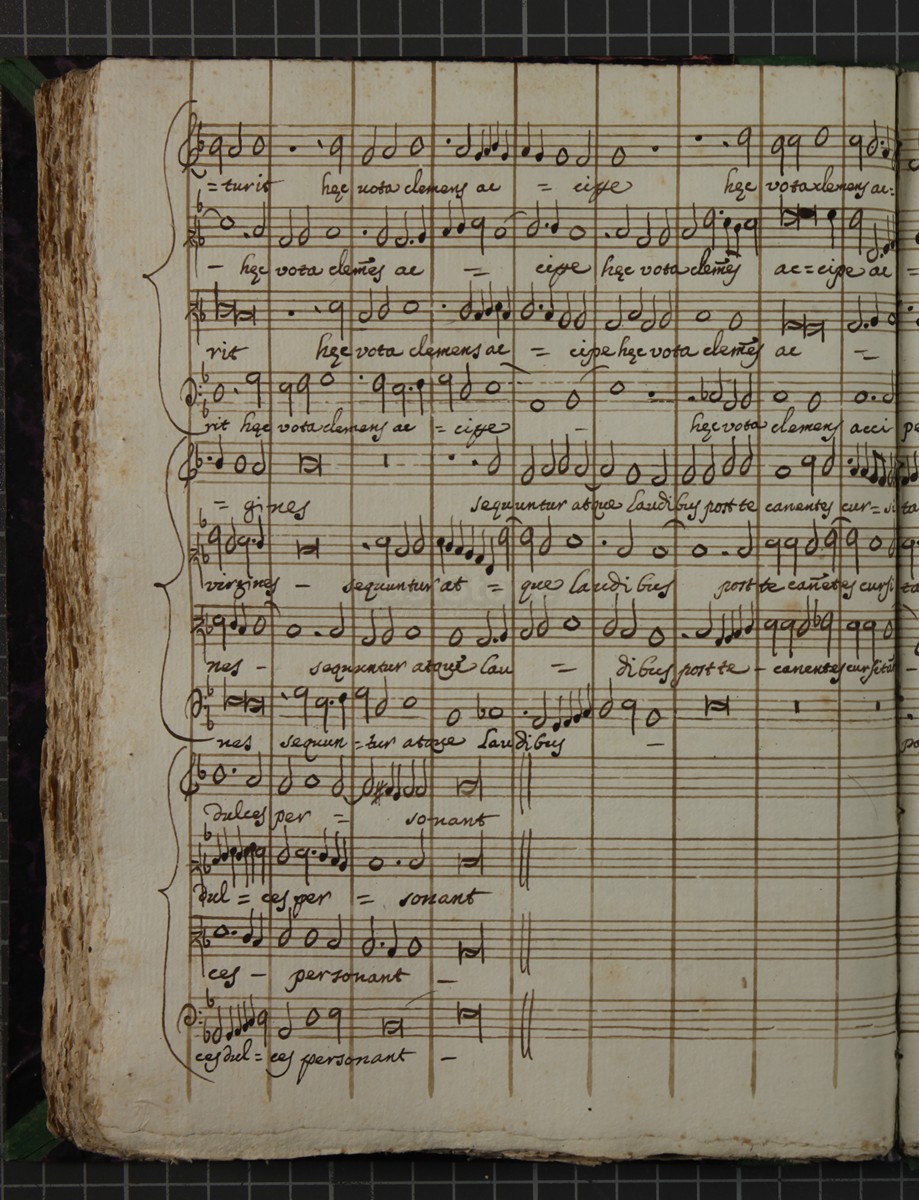 = turit hęc uota clemens ac = cipe hęc vota clemens ac=
– hęc vota clemẽs ac = cipe hęc vota clemẽs ac=cipe ac =
rit hęc vota clemens ac = cipe hęc vota clemẽs ac =
rit hęc vota clemens ac = cipe – hęc vota clemens acci pe
= gines sequuntur atque laudibus post te canentes cur=
virgines – sequuntur at = que laudibus post te canẽtes cursi
nes – sequuntur atque lau = dibus post te – canentes cursitãt –
nes sequun=tur atque laudibus –
dulces per = sonant
dul = ces per = sonant
ces – personant –
ces dul = ces personant –